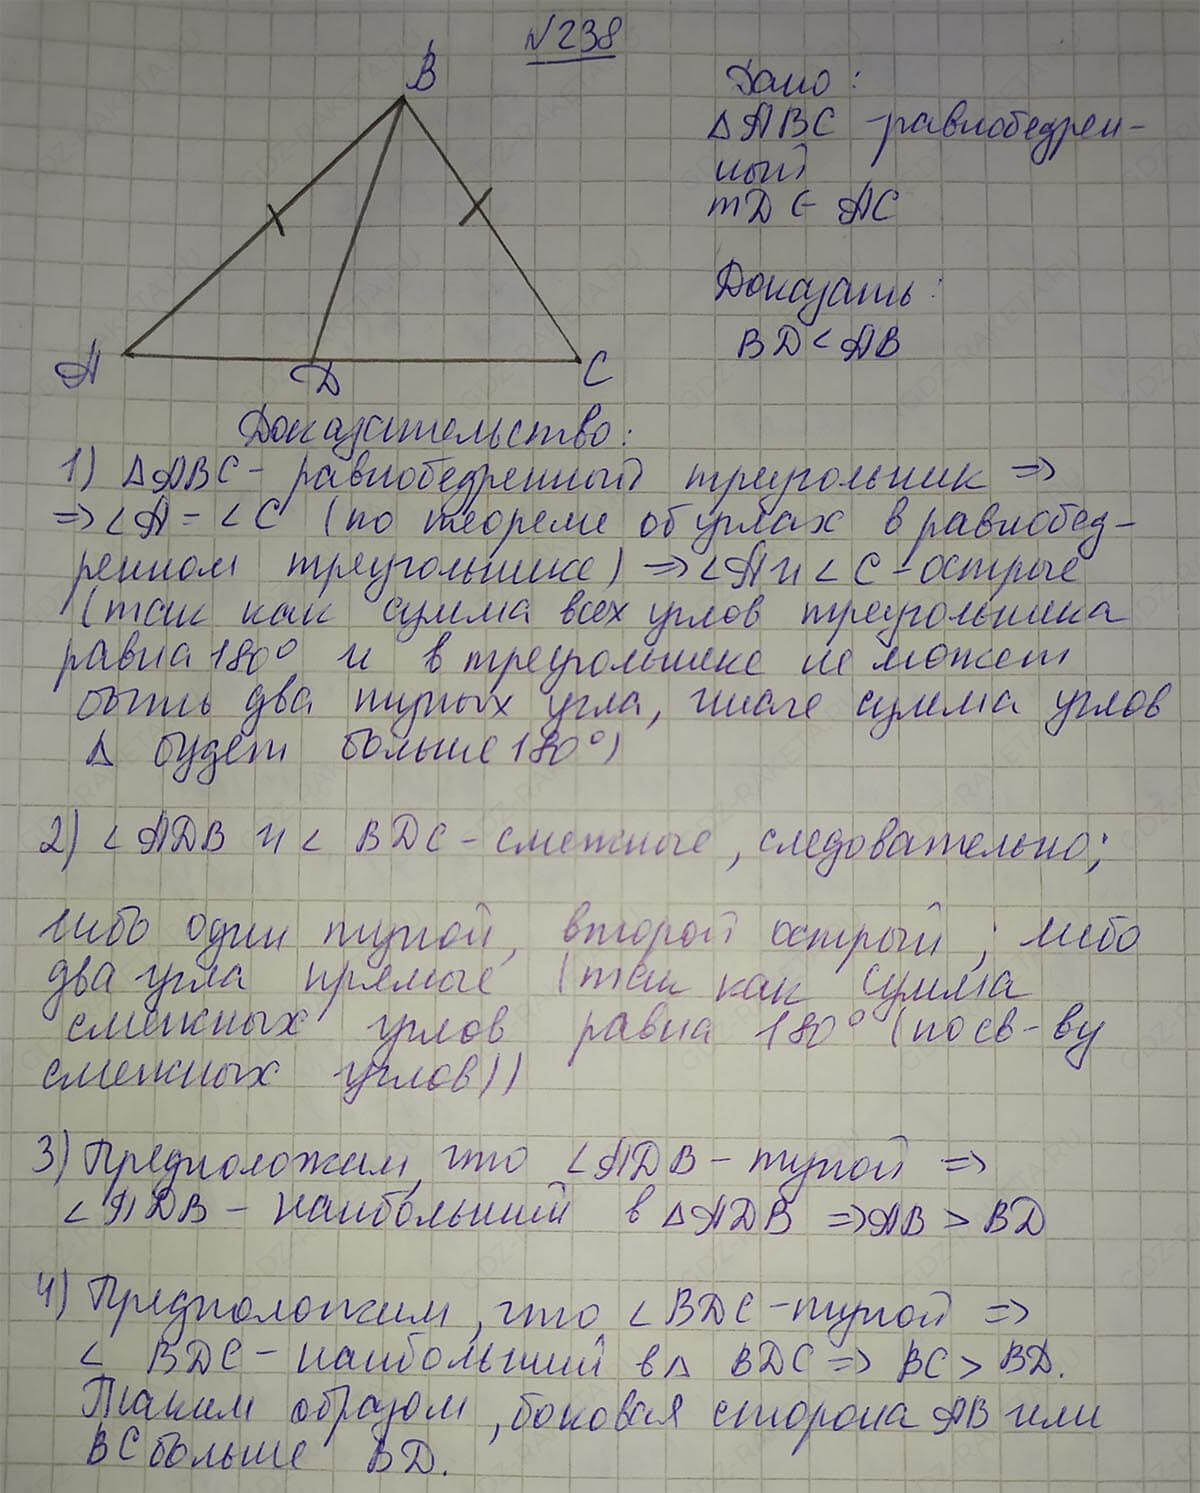 №238
B
A
D
C
Дано:
△ABC -равнобедрен-
ный
т D ∈ AC
Доказать:
BD < AB
Доказательство:
1) △ABC - равнобедренный треугольник =>
=> ∠A = ∠C (по теореме об углах в равнобед-
ренном треугольнике) => ∠A и ∠C - острые
(так как сумма всех углов треугольника
равна 180° и в треугольнике не может
быть два тупых угла, иначе сумма углов
△ будет больше 180°)
2) ∠ADB и ∠BDC - смежные, следовательно;
либо один тупой, второй острый; либо
два угла прямые (так как сумма
смежных углов равна 180° (по св-ву
смежных углов))
3) Предположим, что ∠ADB - тупой =>
∠ADB - наибольший в △ADB => AB > BD
4) Предположим, что ∠BDC - тупой =>
∠BDC - наибольший в △ BDC => BC > BD.
Таким образом, боковая сторона AB или
BC больше BD.